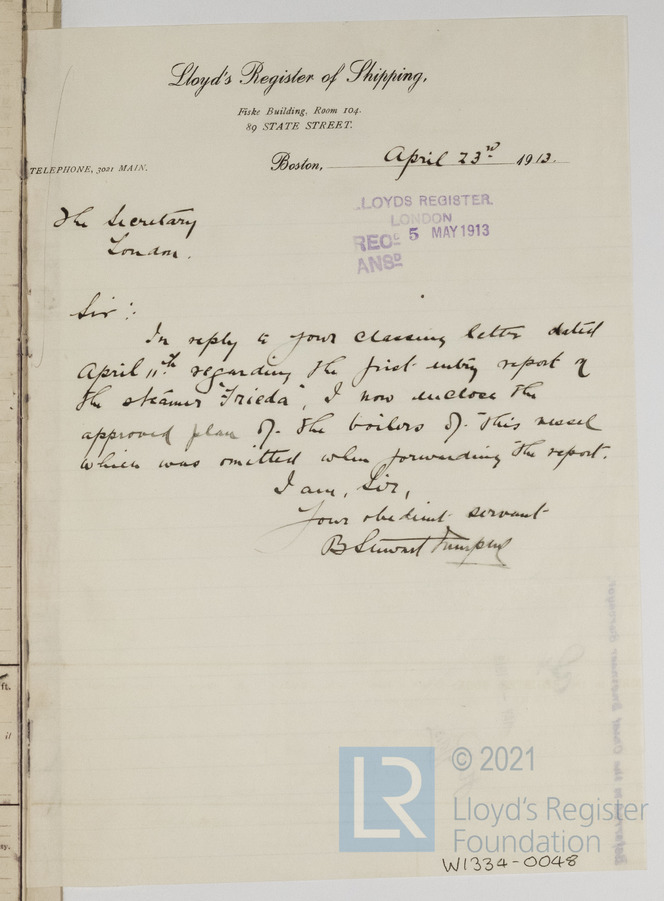 Lloyd's Register of Shipping,
Fiske Building, Room 104.
89 STATE STREET.
TELEPHONE, 3021 MAIN.
Boston, April 23rd 1913.
LLOYDS REGISTER.
LONDON
RECD 5 MAY 1913
ANSD
The Secretary
London.
Sir:
In reply to your classing letter dated
April 11th regarding the first entry report of
the steamer "Frieda", I now enclose the
approved plan of the boilers of this vessel
which was omitted when forwarding the report.
I am, Sir,
Your obedient servant
B Stewart
ft.
© 2021
LR Lloyd's Register
Foundation
W1334-0048